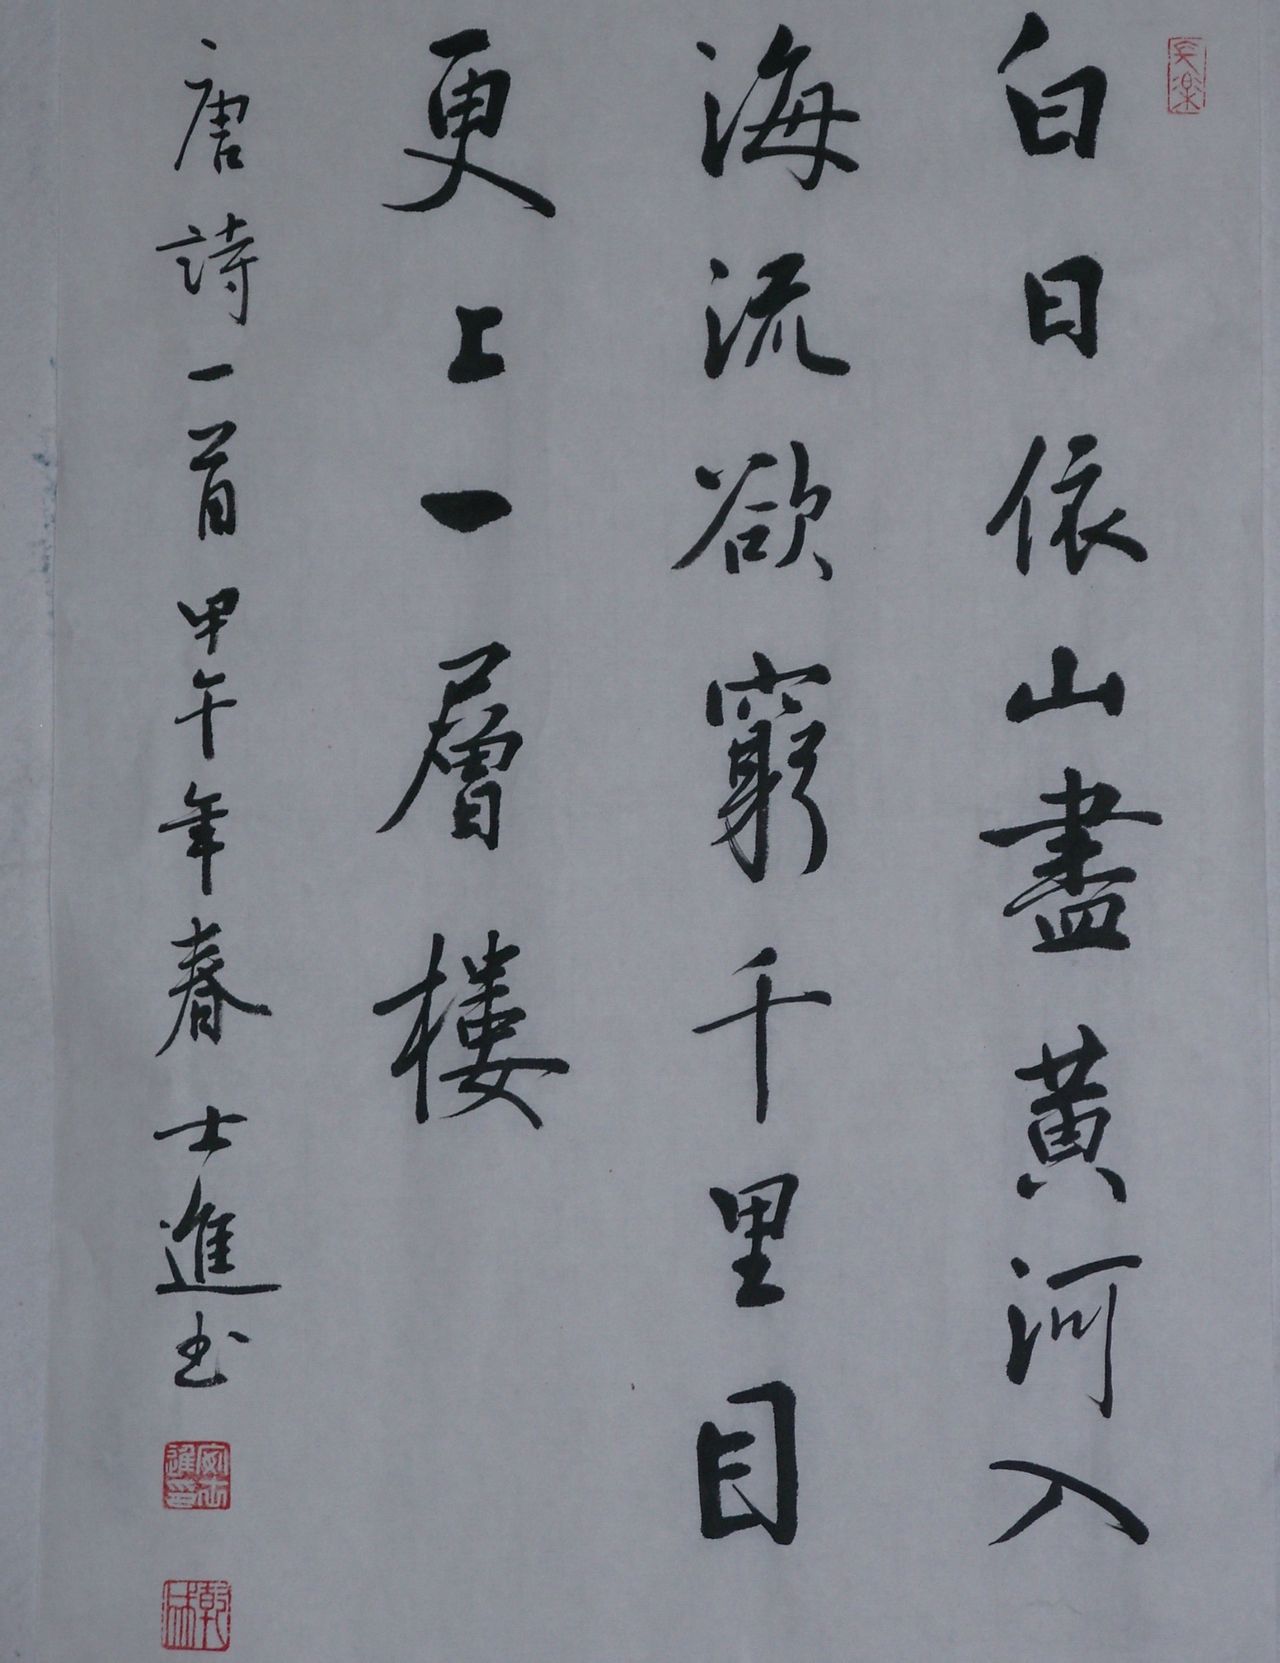 白日依山盡黃河入
海流欲窮千里目
更上一層樓
唐詩一首甲午年春士進书